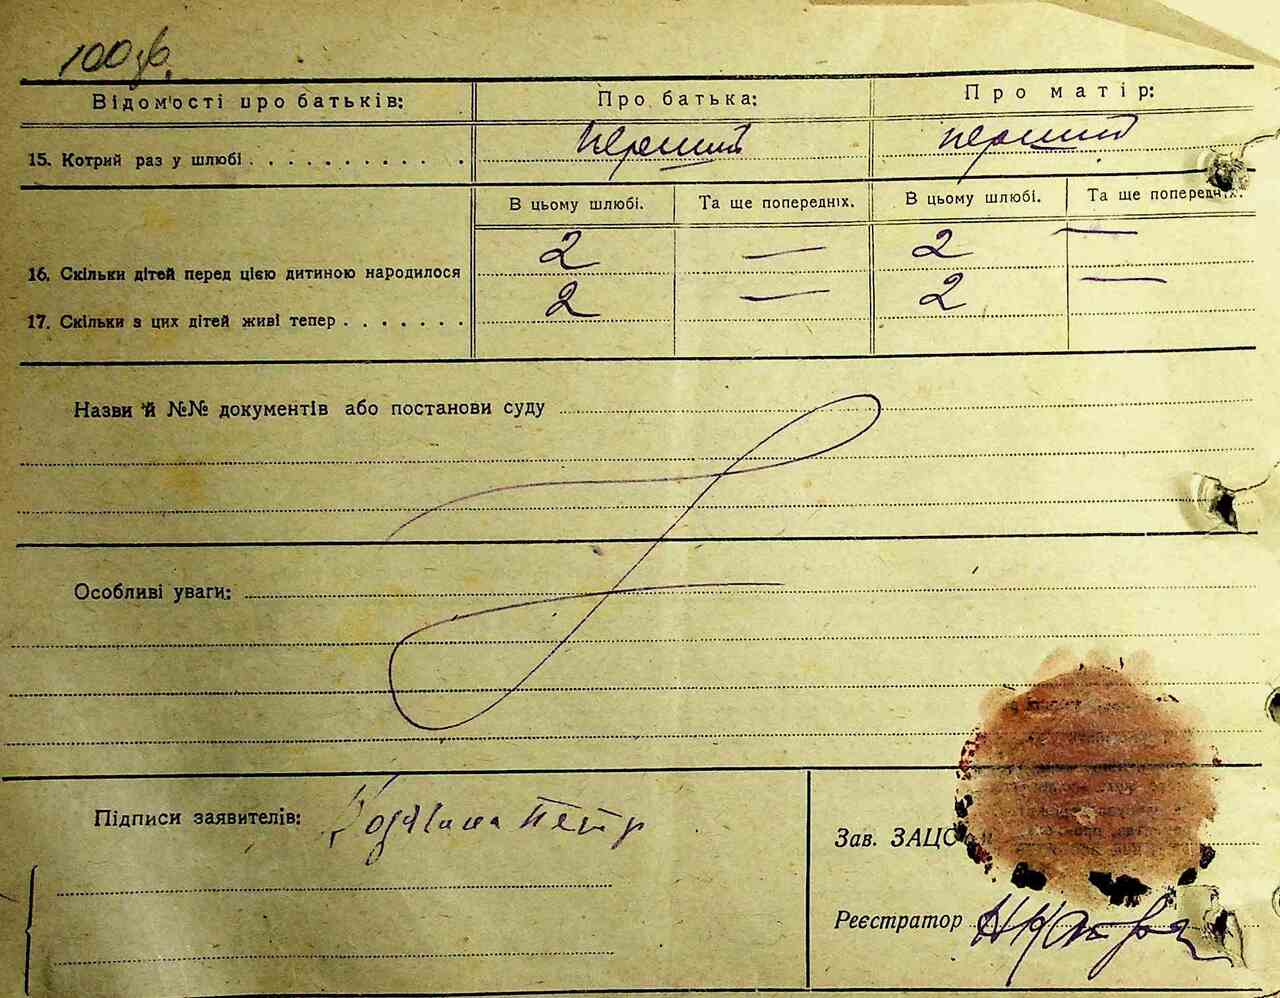 100 зв.
Відом'ості про батьків: Про батька: Про матір:
15. Котрий раз у шлюбі . . . . . . . . . . . перший перший
В цьому шлюбі. Та ще попередніх. В цьому шлюбі. Та ще попередніх.
16. Скільки дітей перед цією дитиною народилося 2 — 2 —
17. Скільки з цих дітей живі тепер . . . . . . . 2 — 2 —
Назви й №№ документів або постанови суду
Особливі уваги:
Підписи заявителів: Петр
Зав. ЗАЦС'ом
Реєстратор